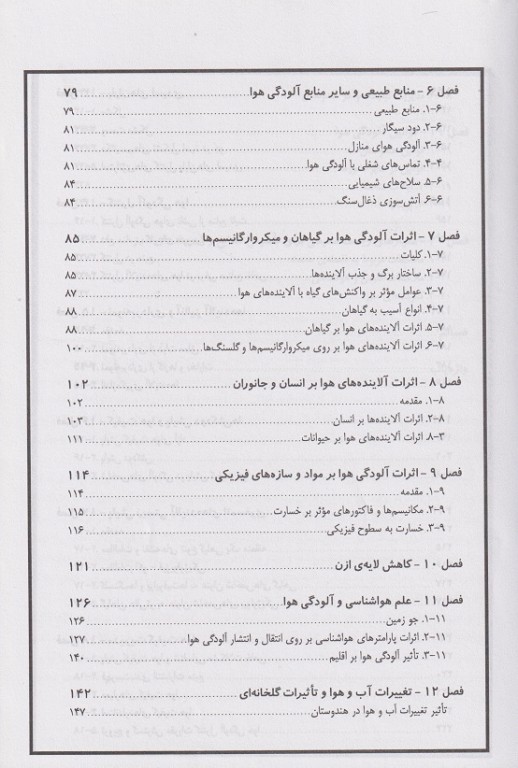 فصل ۶ - منابع طبیعی و سایر منابع آلودگی هوا ........ ۷۹
۶-۱. منابع طبیعی ........ ۷۹
۶-۲. دود سیگار ........ ۸۱
۶-۳. آلودگی هوای منازل ........ ۸۱
۴-۴. تماس‌های شغلی با آلودگی هوا ........ ۸۱
۶-۵. سلاح‌های شیمیایی ........ ۸۴
۶-۶. آتش‌سوزی ذغال‌سنگ ........ ۸۴
فصل ۷ - اثرات آلودگی هوا بر گیاهان و میکروارگانیسم‌ها ........ ۸۵
۷-۱. کلیات ........ ۸۵
۷-۲. ساختار برگ و جذب آلاینده‌ها ........ ۸۵
۷-۳. عوامل مؤثر بر واکنش‌های گیاه با آلاینده‌های هوا ........ ۸۷
۷-۴. انواع آسیب به گیاهان ........ ۸۸
۷-۵. اثرات آلاینده‌های هوا بر گیاهان ........ ۸۸
۷-۶. اثرات آلاینده‌های هوا بر روی میکروارگانیسم‌ها و گلسنگ‌ها ........ ۱۰۰
فصل ۸ - اثرات آلاینده‌های هوا بر انسان و جانوران ........ ۱۰۲
۸-۱. مقدمه ........ ۱۰۲
۸-۲. اثرات آلاینده‌ها بر انسان ........ ۱۰۳
۸-۳. اثرات آلاینده‌های هوا بر حیوانات ........ ۱۱۱
فصل ۹ - اثرات آلودگی هوا بر مواد و سازه‌های فیزیکی ........ ۱۱۴
۹-۱. مقدمه ........ ۱۱۴
۹-۲. مکانیسم‌ها و فاکتورهای مؤثر بر خسارت ........ ۱۱۵
۹-۳. خسارت به سطوح فیزیکی ........ ۱۱۶
فصل ۱۰ - کاهش لایه‌ی ازن ........ ۱۲۱
فصل ۱۱ - علم هواشناسی و آلودگی هوا ........ ۱۲۶
۱۱-۱. جو زمین ........ ۱۲۶
۱۱-۲. اثرات پارامترهای هواشناسی بر روی انتقال و انتشار آلودگی هوا ........ ۱۲۷
۱۱-۳. تأثیر آلودگی هوا بر اقلیم ........ ۱۴۰
فصل ۱۲ - تغییرات آب و هوا و تأثیرات گلخانه‌ای ........ ۱۴۲
تأثیر تغییرات آب و هوا در هندوستان ........ ۱۴۷